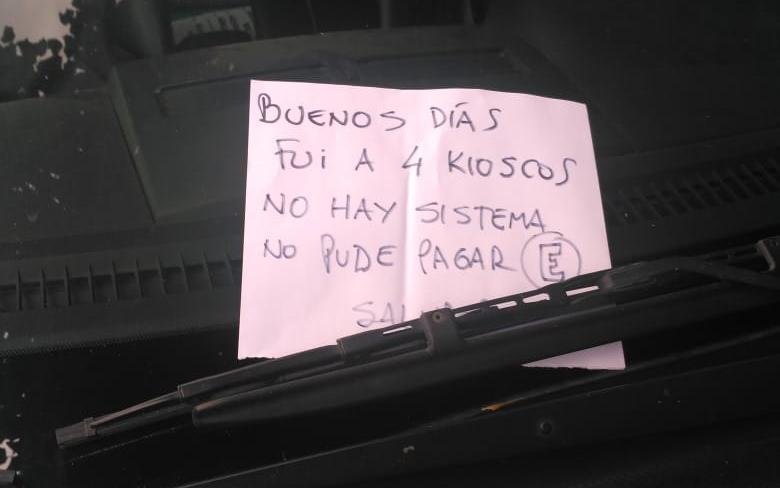 BUENOS DÍAS
FUI A 4 KIOSCOS
NO HAY SISTEMA
NO PUDE PAGAR E